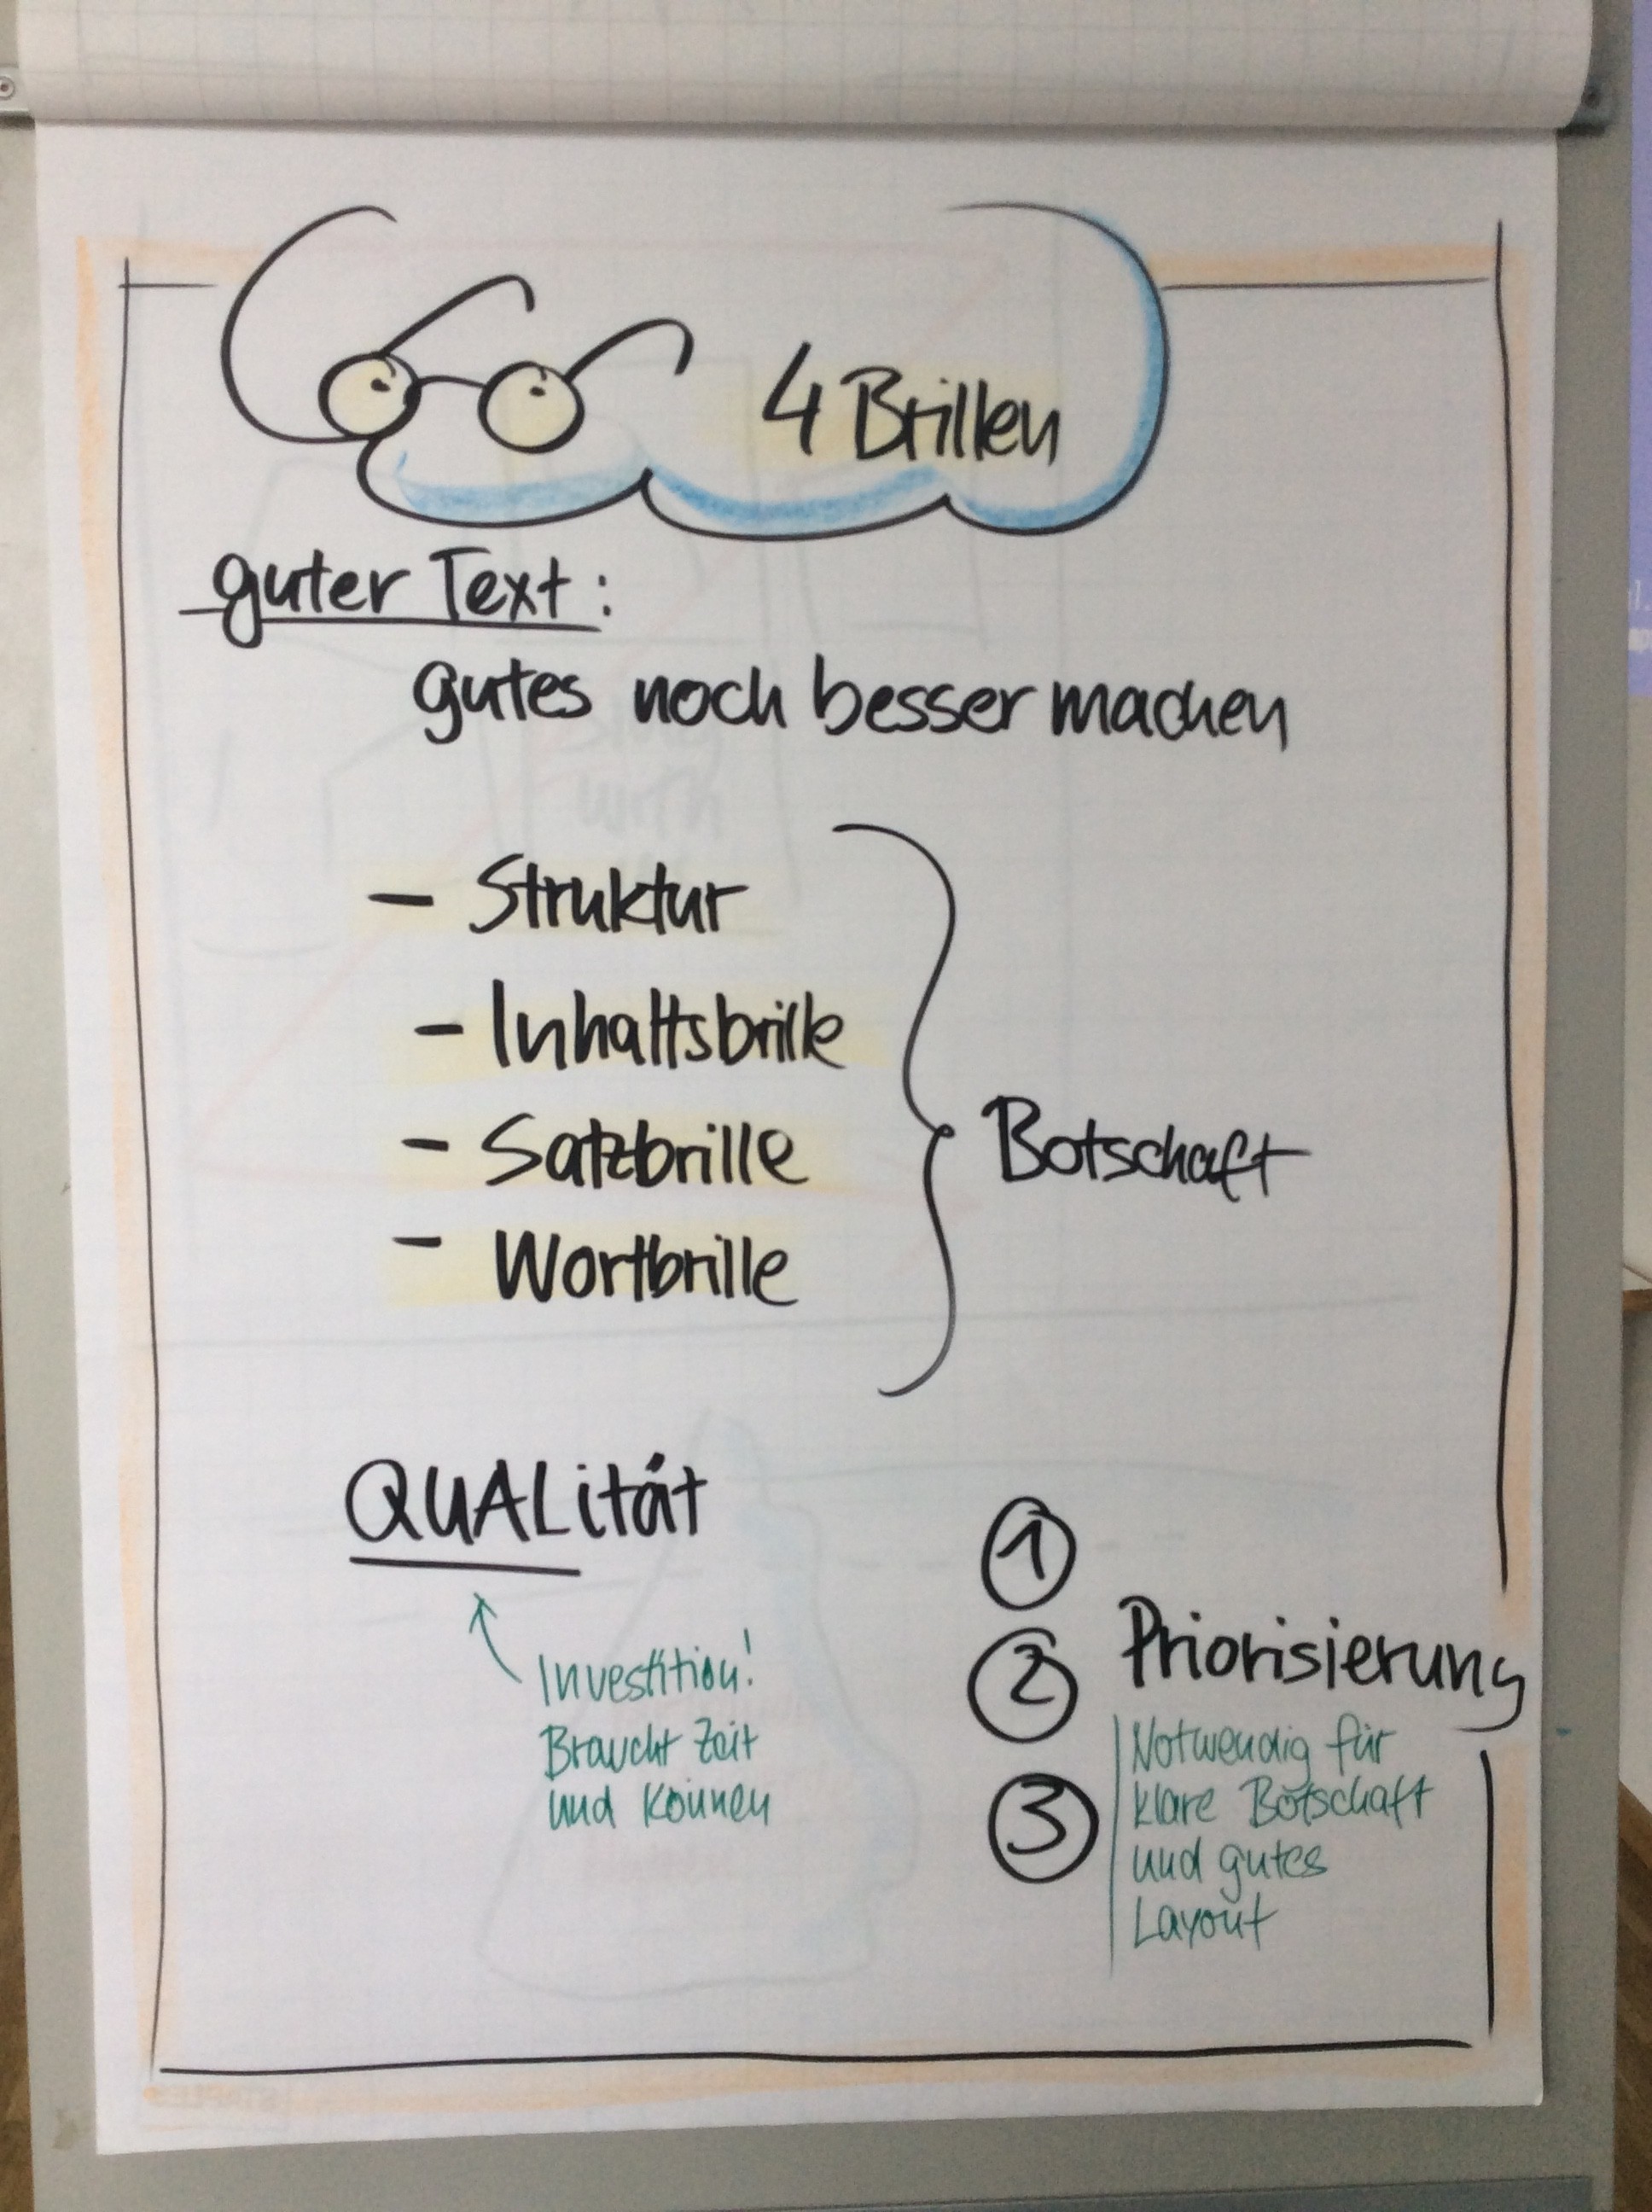 4 Brillen
guter Text:
gutes noch besser machen
- Struktur
- Inhaltsbrille
- Satzbrille
- Wortbrille
Botschaft
QUALität
Investition!
Braucht Zeit
und Können
1
2
3
Priorisierung
Notwendig für
klare Botschaft
und gutes
Layout